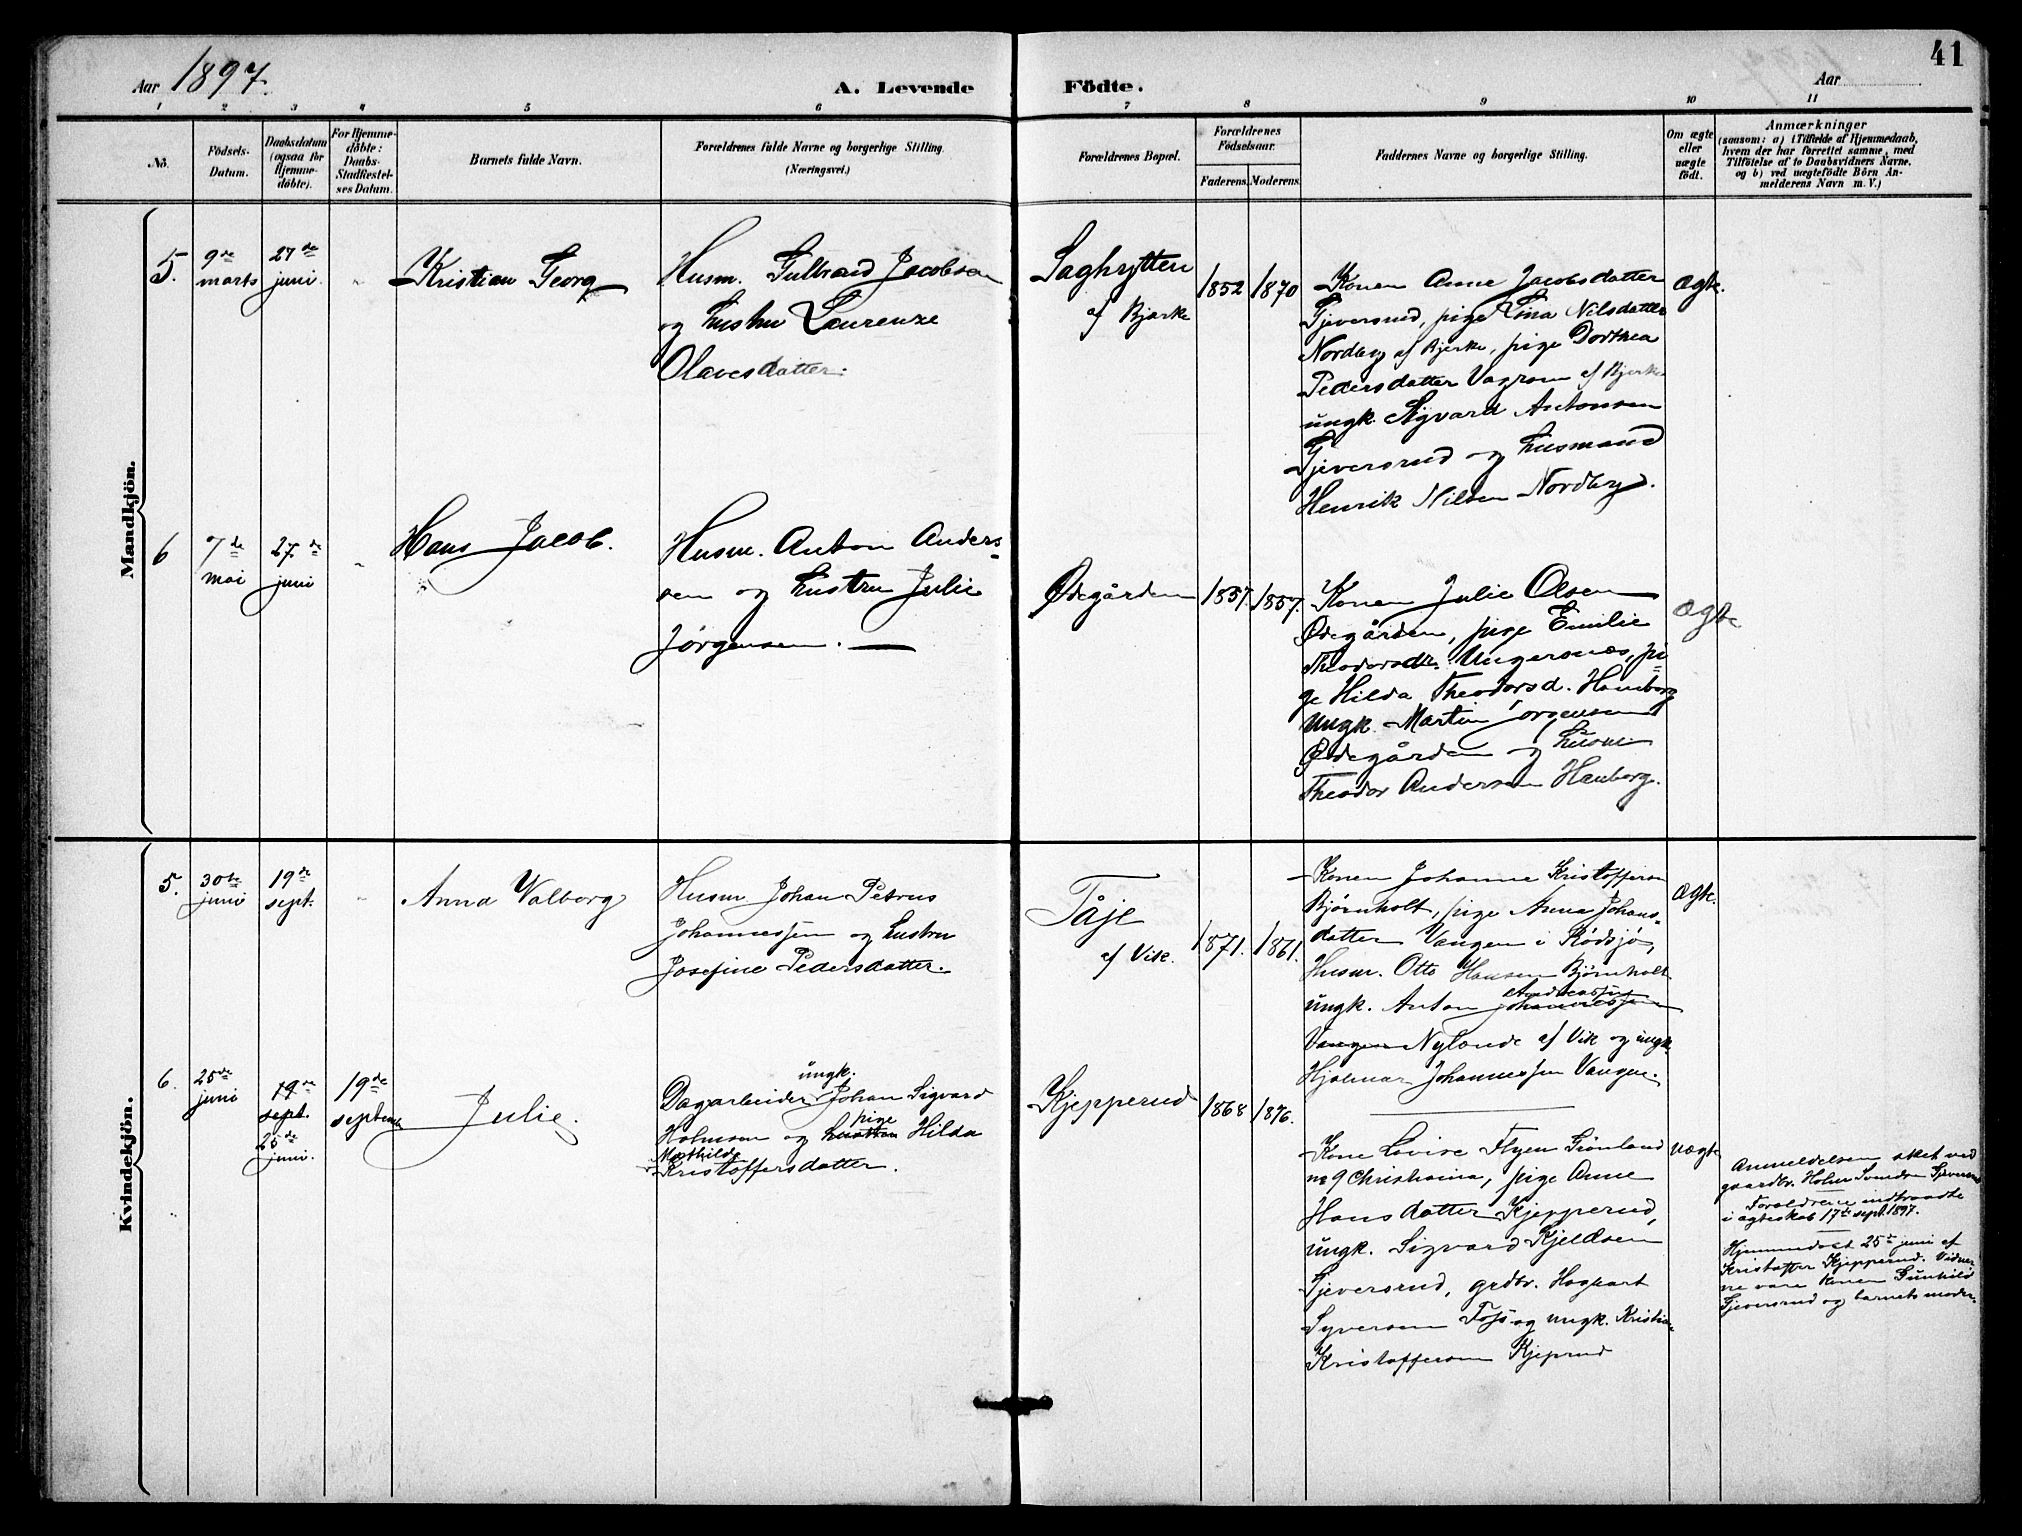 41
Aar 1897.
A. Levende Födte.
Aar
1 2 3 4 5 6 7 8 9 10 11
No.
Födsels-
Datum.
Daabsdatum
(ogsaa for
Hjemme-
döbte).
For Hjemme-
döbte:
Daabs-
Stadfæstel-
ses Datum.
Barnets fulde Navn.
Forældrenes fulde Navne og borgerlige Stilling.
(Næringsvei.)
Forældrenes Bopæl.
Forældrenes
Födselsaar.
Faderens. Moderens.
Faddernes Navne og borgerlige Stilling.
Om ægte
eller
uægte
født.
Anmærkninger
(saasom: a) i Tilfælde af Hjemmedaab,
hvem der har forrettet samme, med
Tilföielse af to Daabsvidners Navne.
og b) ved uægtefödte Börn An-
melderens Navn m. V.)
Mandkjön.
5.
9de
marts
27de
juni
"
Kristian Georg
Husm. Gulbrand Jacobsen
og hustru Laurenze
Olavesdatter.
Saghytten
af Bjerke
1852
1870
Konen Anne Jacobsdatter
Gjeversrud, pige Lina Nilsdatter
Nordby af Bjerke, pige Dorthea
Pedersdatter af Bjerke
ungk. Sigvard Antonsen
Gjeversrud og husmand
Henrik Nilsen Nordby.
Ægte.
6
7de
mai
27.de
juni
"
Hans Jacob.
Husm. Anton Anders-
sen og hustru Julie
Jørgensen.
Ødegården
1857.
1857.
Konen Julie Olsen
Ødegården, pige Emilie
Theodorsdtr. Ungersnæs, pi-
ge Hilda Theodorsd. Hamborg
Ungk. Martin Jørgensen
Ødegården og husm.
Theodor Andersen Hamborg.
Ægte
Kvindekjön.
5.
30te
juni
19de
sept.
"
Anna Valborg
Husm Johan Petrus
Johannessen og hustru
Josefine Pedersdatter.
Tåje
af Vik.
1871.
1861.
Konen Johanne Kristoffersen
Bjørnholt, pige Anna Johans-
datter Vangen i Rødsjø,
Husm. Otto Hansen Bjørnholt
Andreassen
ungk. Anton Johannessen
Vangen Nylænde af Vik og ungk.
Hjalmar Johannessen Vangen.
Ægte.
6.
25de
juni
19de
sept.
25de
juni.
19de
septembr
Julie.
ungk.
Dagarbeider Johan Sigvard
pige
Holmsen og hustru Hilda
Mathilde
Kristoffersdatter.
Kjepperud
1868
1876.
Kone Lovise Flyen Grønland
no 9 Christiania, pige Anne
Hansdatter Kjepperud,
ungk. Sigvard Kjeldsen
Gjeversrud, grdbr. Hagbart
Syversen Foss og ungk. Kristian
Kristoffersen Kjeprud
uægte
Anmeldelsen sket ved
gaardbr. Holm Svendsen
Forældrene indtraadte
i ægteskab 17de sept. 1897.
Hjemmedøbt 25de juni af
Kristoffer Kjepperud. Vidner-
ne vare konen Gunhild
Gjeversrud og barnets moder.